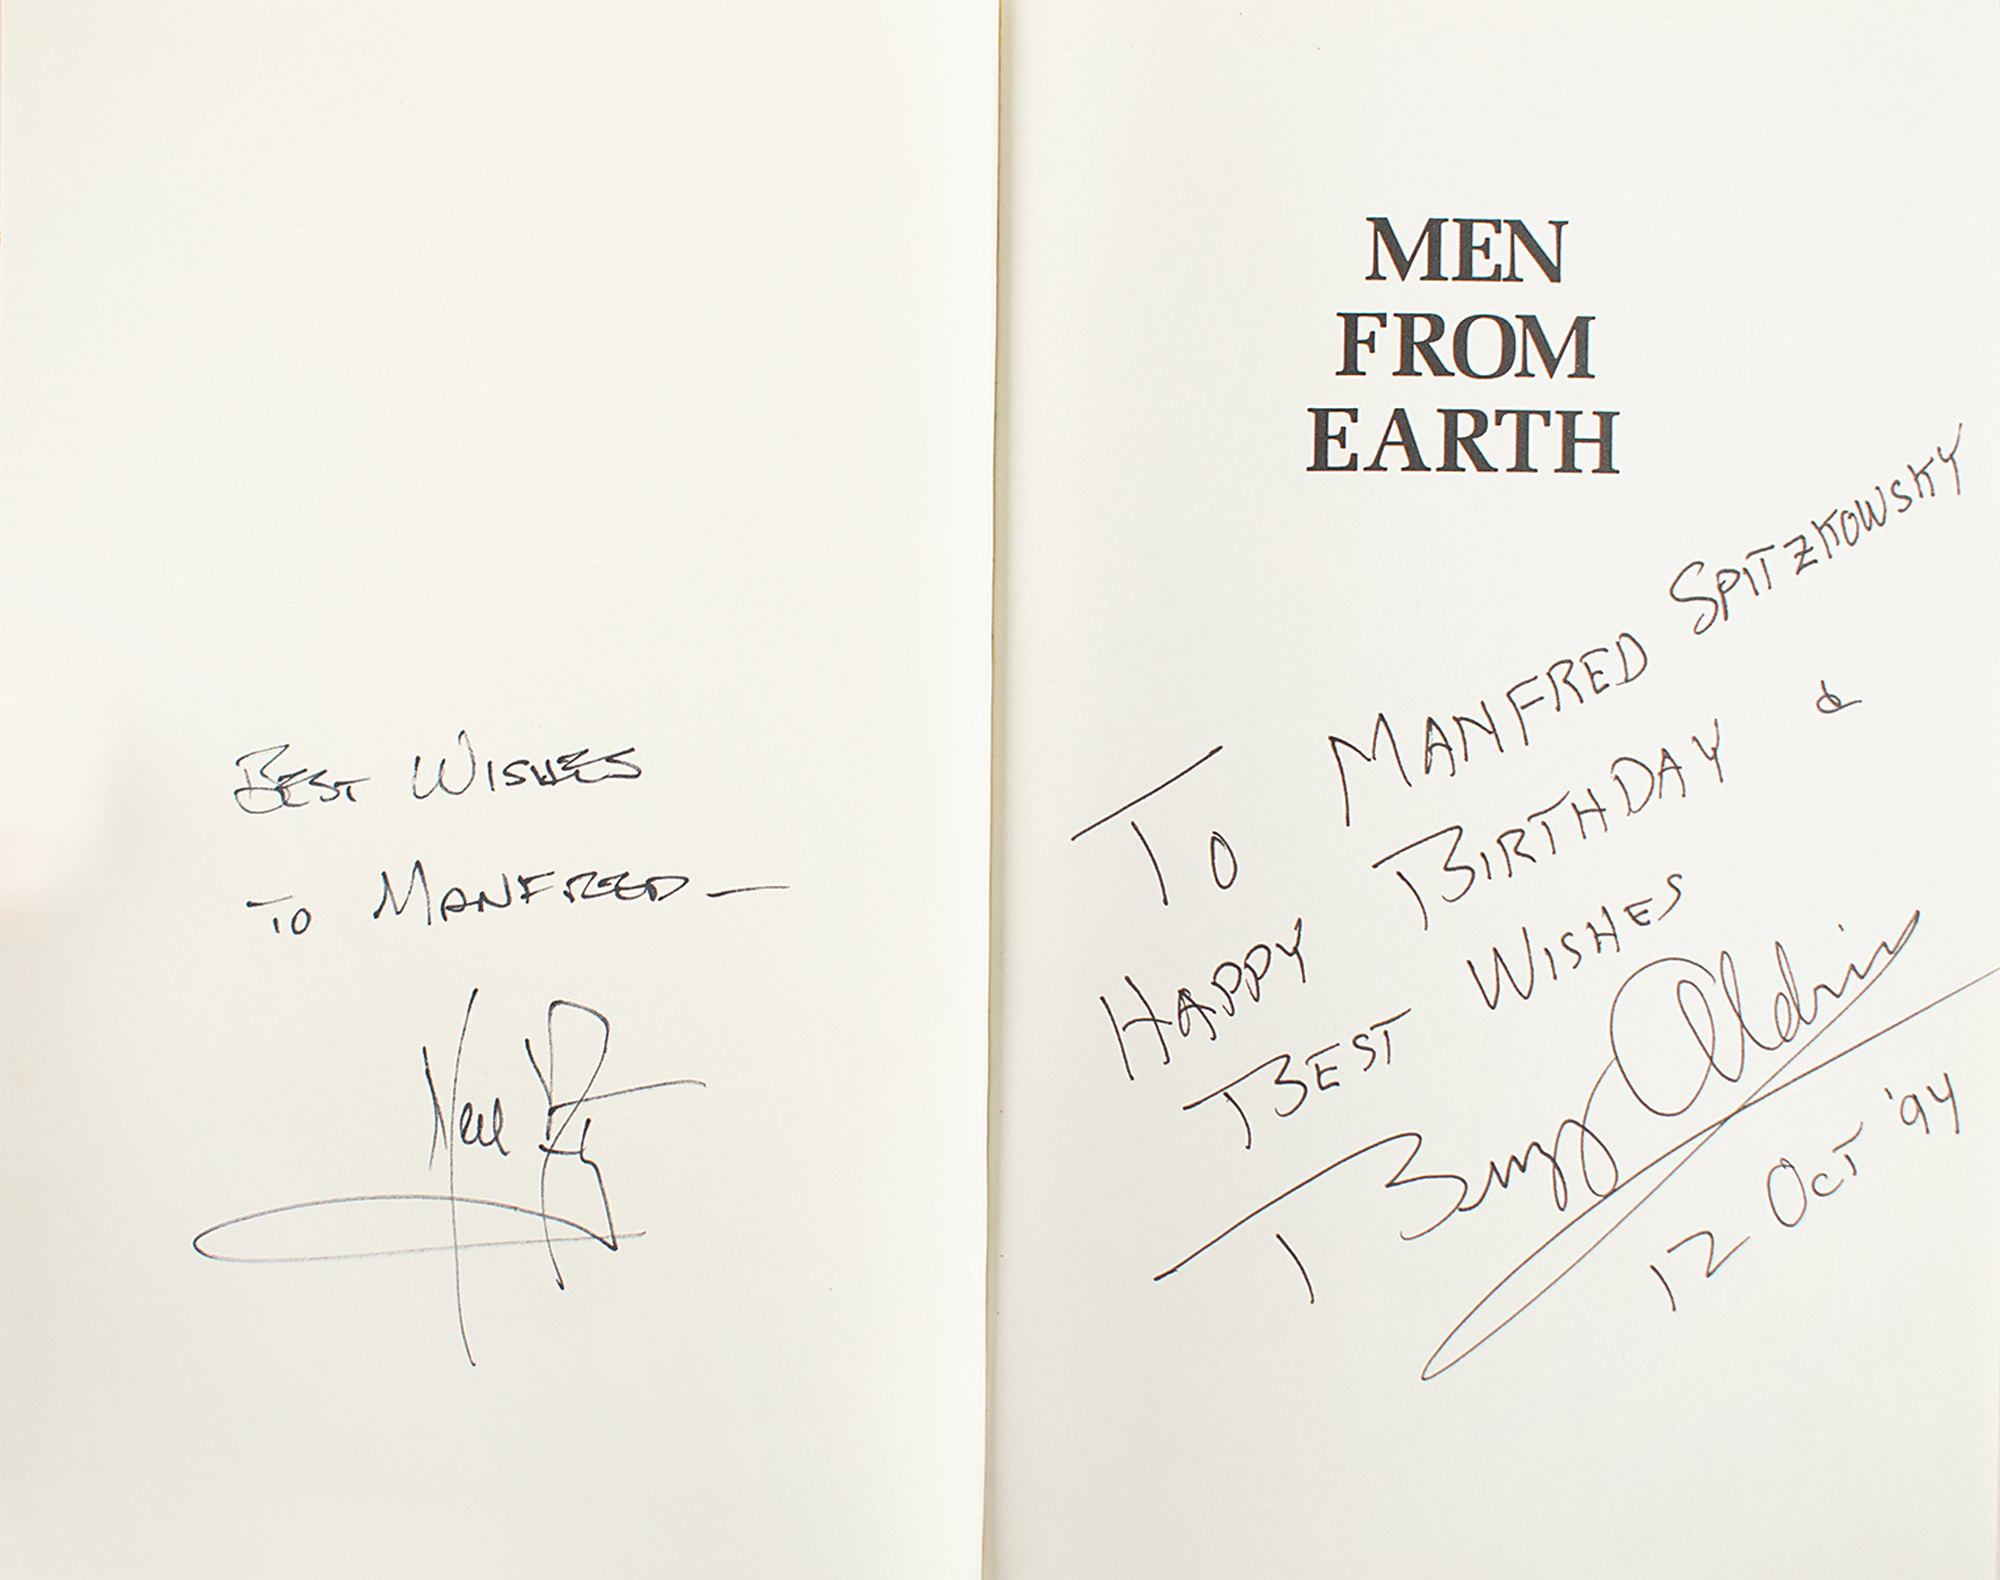 BEST WISHES
TO MANFRED —
Neil
MEN
FROM
EARTH
TO MANFRED SPITZKOWSKY
HAPPY BIRTHDAY &
BEST WISHES
Buzz Aldrin
12 OCT '94